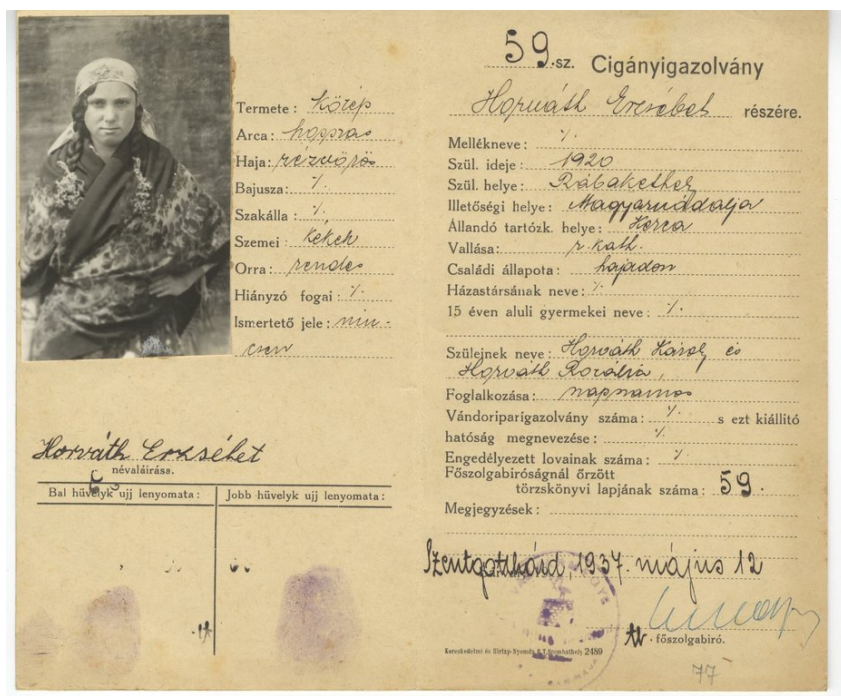 Termete: Közép
Arca: hosszas
Haja: rézvörös
Bajusza: ·/.
Szakálla: ·/.
Szemei: kékek
Orra: rendes
Hiányzó fogai: ·/.
Ismertető jele: nin-
csen
Horváth Erzsébet
névaláirása.
Bal hüvelyk ujj lenyomata:
Jobb hüvelyk ujj lenyomata:
59.sz. Cigányigazolvány
Horváth Erzsébet részére.
Mellékneve: ·/.
Szül. ideje: 1920
Szül. helye: Rábakethely
Illetőségi helye: Magyarnádalja
Állandó tartózk. helye:
Vallása: r. kath.
Családi állapota: hajadon
Házastársának neve: ·/.
15 éven aluli gyermekei neve: ·/.
Szülejnek neve: Horváth Károly és
Horváth Rozália,
Foglalkozása: napszámos
Vándoriparigazolvány száma: ·/. s ezt kiállitó
hatóság megnevezése: ·/.
Engedélyezett lovainak száma: ·/.
Főszolgabiróságnál őrzött
törzskönyvi lapjának száma: 59.
Megjegyzések:
Szentgotthárd, 1937. május 12
főszolgabiró.
Kereskedelmi és Hirlap-Nyomda R.T. Szombathely 2489
77